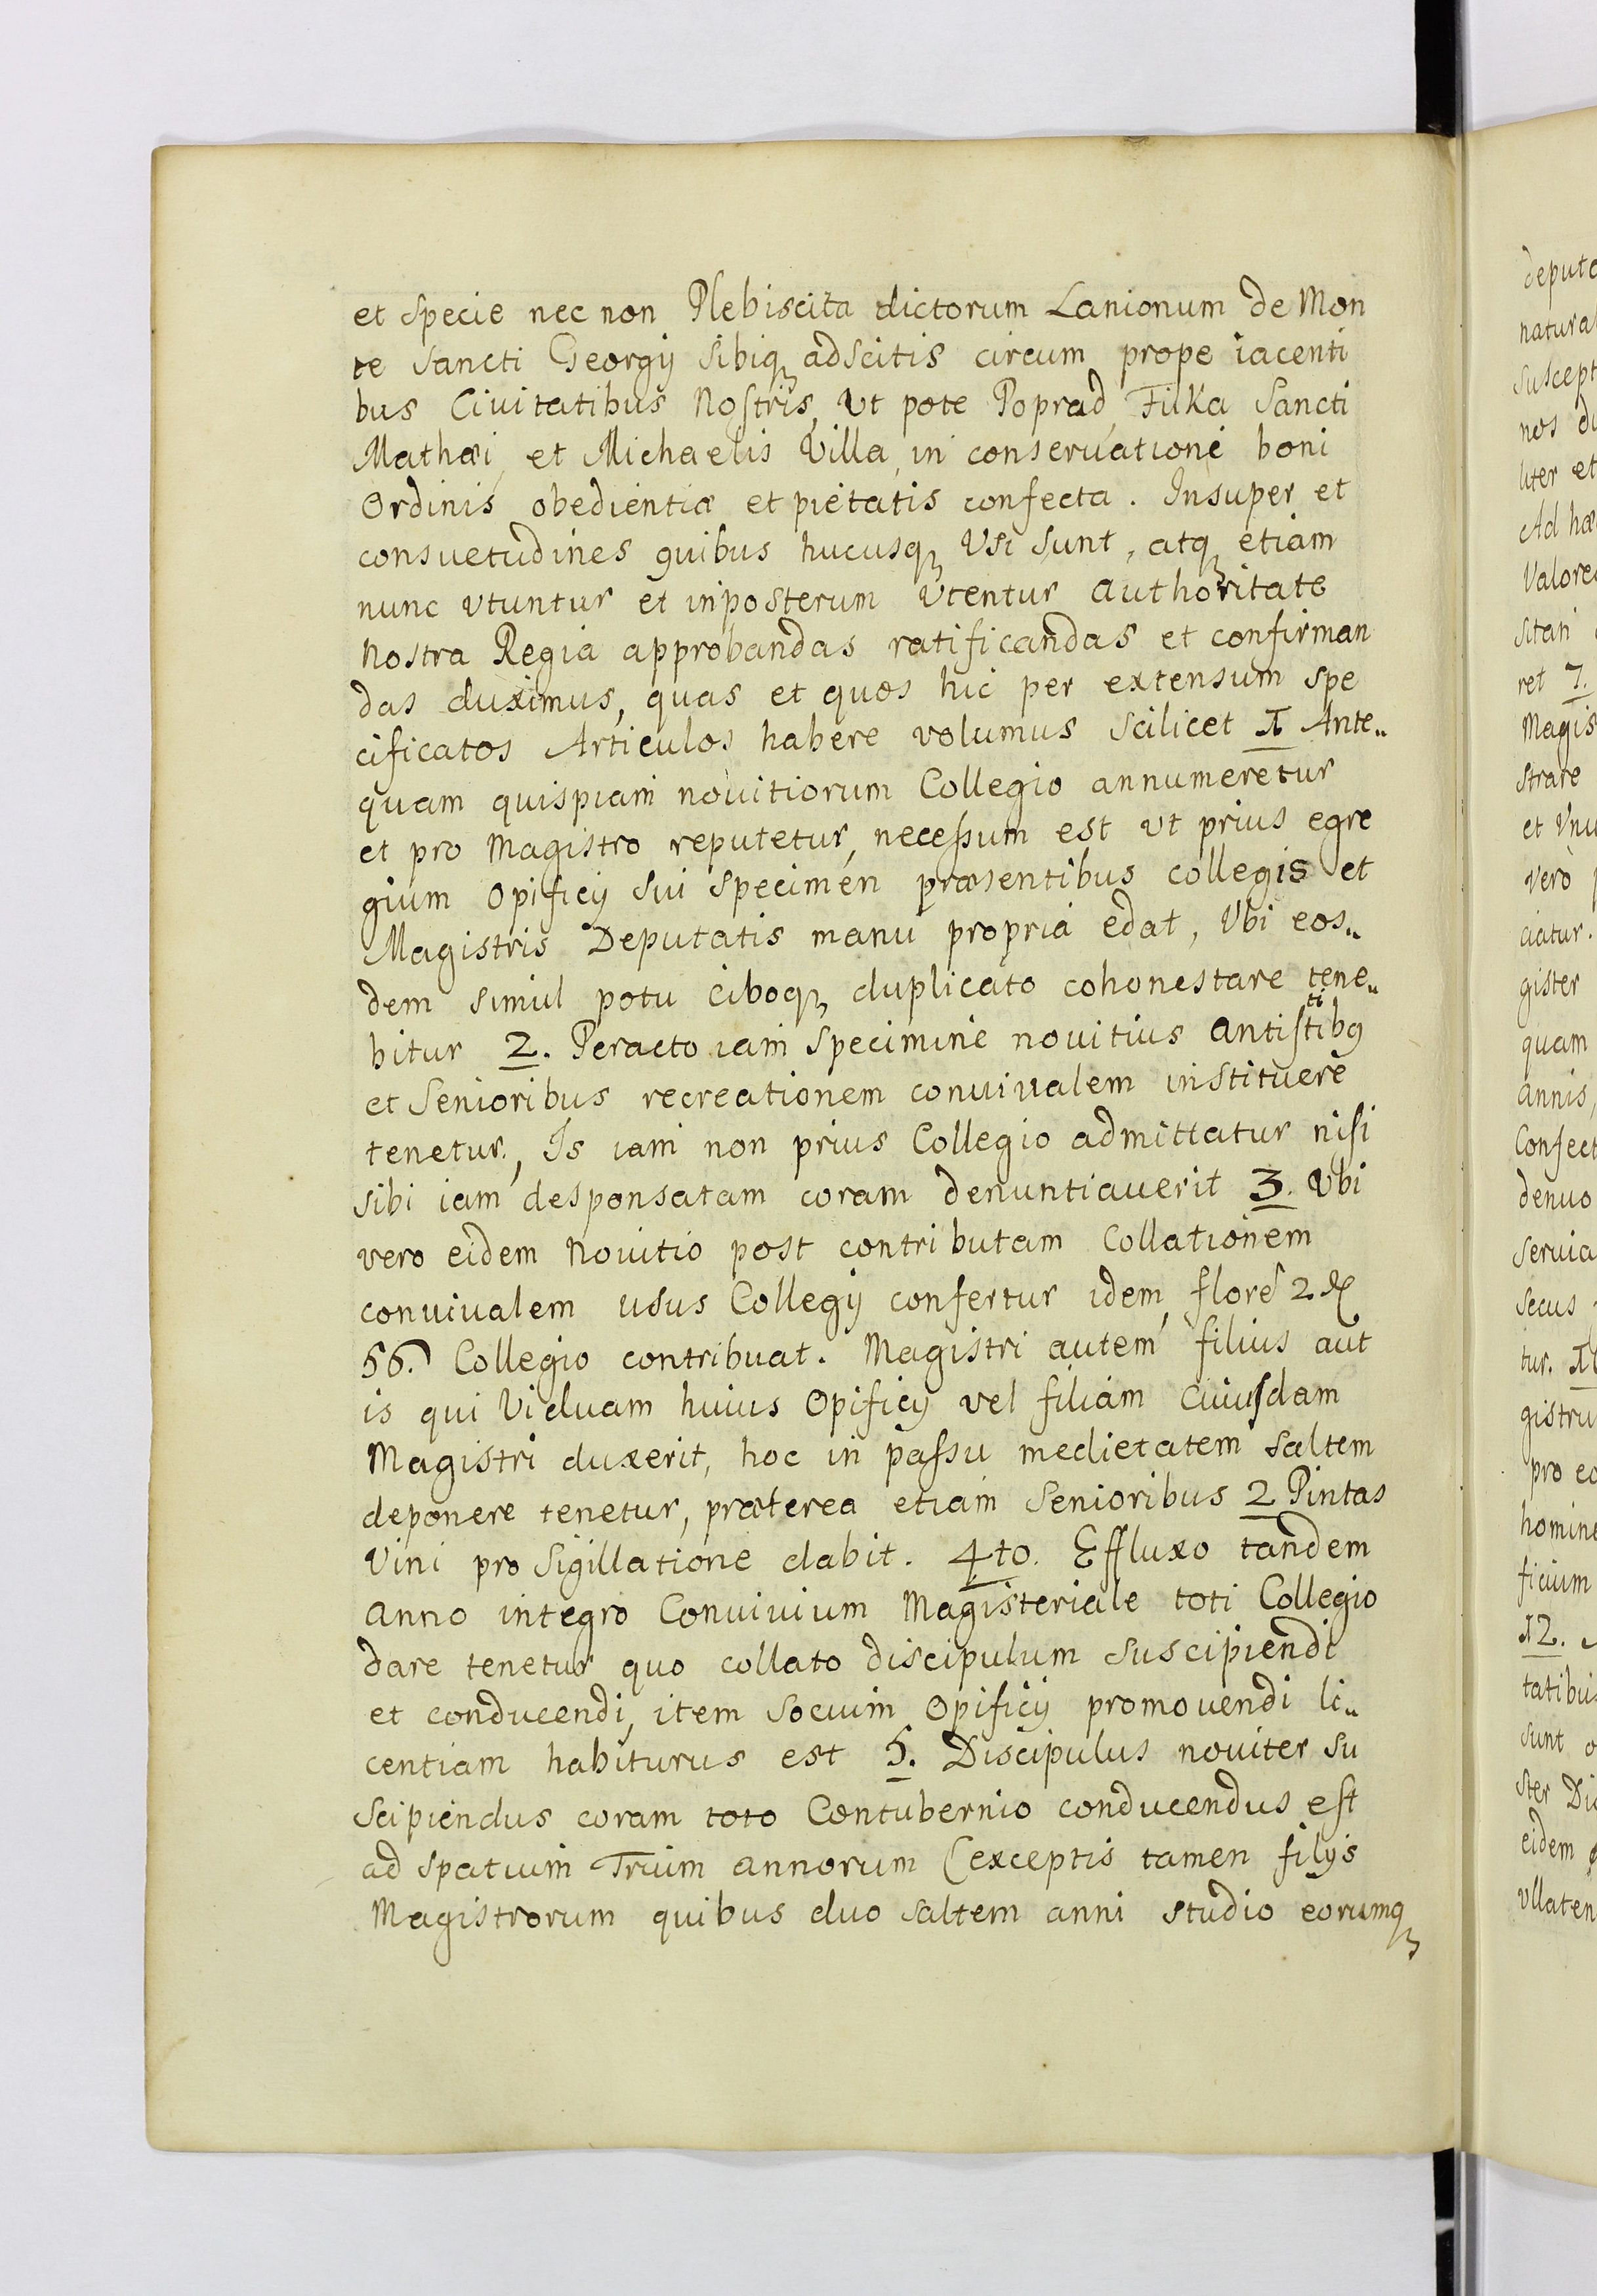 et Specie nec non Plebiscita dictorum Lanionum de Mon
te Sancti Georgij Sibiq₃ adscitis circum prope iacenti
bus Ciuitatibus Nostris, Vt pote Poprad, Filka Sancti
Mathæi, et Michaelis Villa, in conseruatione boni
Ordinis obedientiæ et pietatis confecta. Insuper et
consvetudines quibus hucusq₃ Vsi sunt, atq₃ etiam
nunc vtuntur et inposterum vtentur authoritate
Nostra Regia approbandas ratificandas et confirman
das duximus, quas et quos hic per extensum spe
cificatos Articulos habere volumus scilicet 1 Ante„
quam quispiam nouitiorum Collegio annumeretur
et pro Magistro reputetur, necessum est vt prius egre
gium Opificij sui specimen præsentibus collegis et
Magistris Deputatis manu propria edat, Vbi eos„
dem simul potu ciboq₃ duplicato cohonestare tene„
bitur 2. Peracto iam specimine nouitius antistitibꝫ
et Senioribus recreationem conuiualem instituere
tenetur, Is iam non prius Collegio admittatur nisi
sibi iam desponsatam coram denuntiauerit 3. Vbi
vero eidem Nouitio post contributam Collationem
conuiualem usus Collegij confertur idem, flore 2 ₰
56. Collegio contribuat. Magistri autem filius aut
is qui Viduam huius Opificij vel filiam cuiusdam
Magistri duxerit, hoc in passu medietatem saltem
deponere tenetur, præterea etiam Senioribus 2 Pintas
Vini pro Sigillatione dabit. 4to. Effluxo tandem
anno integro Conuiuium Magisteriale toti Collegio
dare tenetur quo collato discipulum suscipiendi
et conducendi, item Socium Opificij promouendi li„
centiam habiturus est 5. Discipulus nouiter su
scipiendus coram toto Contubernio conducendus est
ad spatium Trium annorum (exceptis tamen filijs
Magistrorum quibus duo saltem anni studio eorumq₃
natura
suscept
liter et
Ad hæ
sitan
ret 7.
Magis
strare
et Vnu
vero
ciatur.
gister
quam
annis,
Confect
denuo
seruia
secus
tur.
gistru
pro eo
homine
ficium
12.
tatibus
sunt
ster
eidem
Vllaten